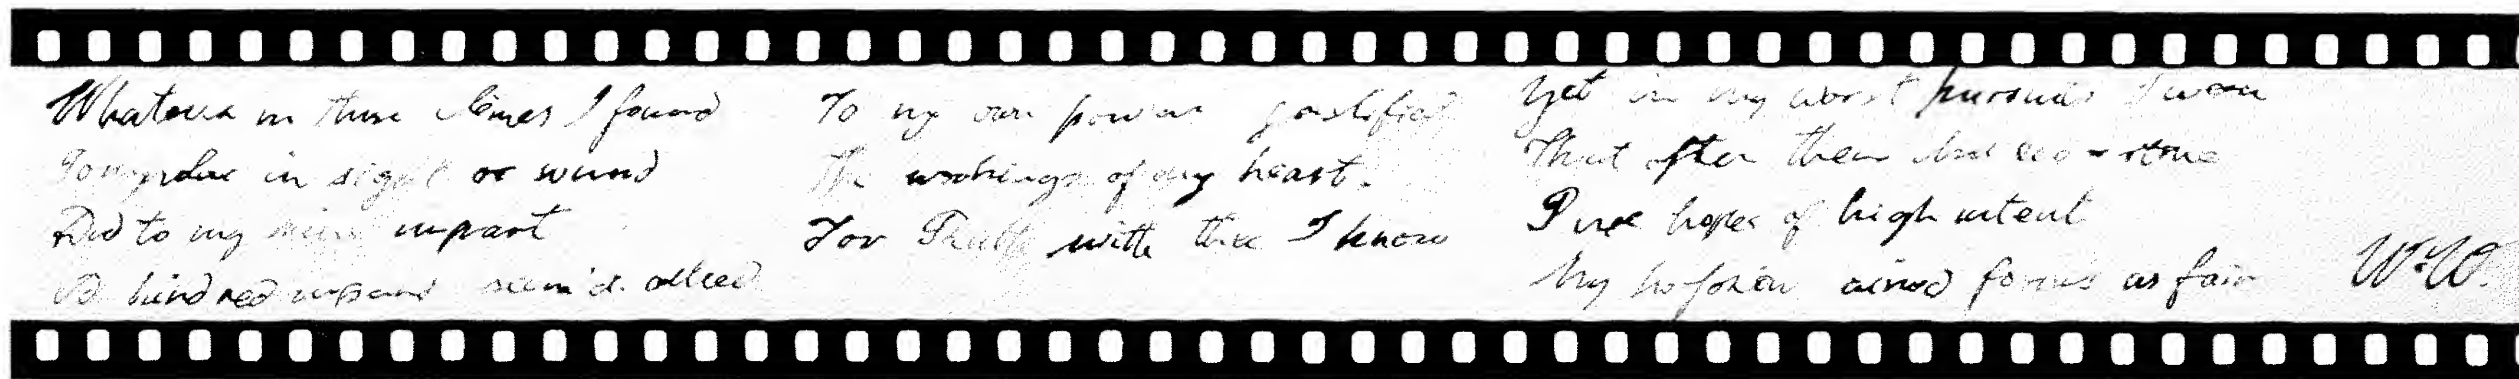 Whatever in those climes I found
in sight or sound
Did to my mind impart
kindred seem'd allied
To my own powers justified
The workings of my heart.
For with thee I know
Yet in my worst pursuits I ween
That often there
Pure hopes of high intent
My forms as fair
W.W.